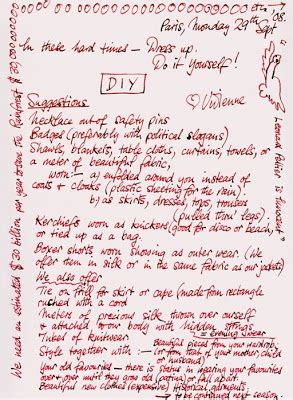 Paris, Monday 29th Sept '08.
In these hard times — Dress up.
Do it Yourself!
DIY
♡ Vivienne
Suggestions
Necklace out of safety pins
Badges (preferably with political slogans)
Shawls, blankets, table cloths, curtains, towels, or
a meter of beautiful fabric,
worn: – a) enfolded around you instead of
coats & cloaks (plastic sheeting for the rain).
b) as skirts, dresses, tops, trousers
(pulled thru' legs).
Kerchiefs worn as knickers (good for disco or beach,
or tied up as a bag.
Boxer shorts, worn showing as outer wear (We
offer them in silk or in the same fabric as our jackets)
We also offer
Tie on frill for skirt or cape (made from rectangle
ruched with a cord
Meters of precious silk thrown over ourself
& attached to our body with hidden strings
= evening wear
Tubes of knitwear
Style together with :—
Beautiful pieces from your wardrobe,
(or from that of your mother, child
or husband)
Your old favourites — there is status in wearing your favourites
over & over until they grow old (patina) or fall about.
Beautiful new clothes (expensive) Historical garments.
→ to be continued next season
We need an estimated $30 billion per year to save the Rainforest $30,000000000 etc
"Leonard Peltier is innocent"